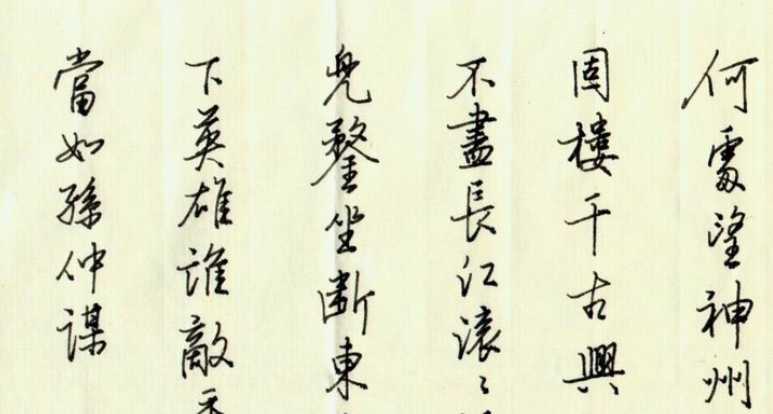 何處望神州
固樓千古興
不盡長江滾〻
兜鍪坐斷東
下英雄誰敵
當如孫仲謀